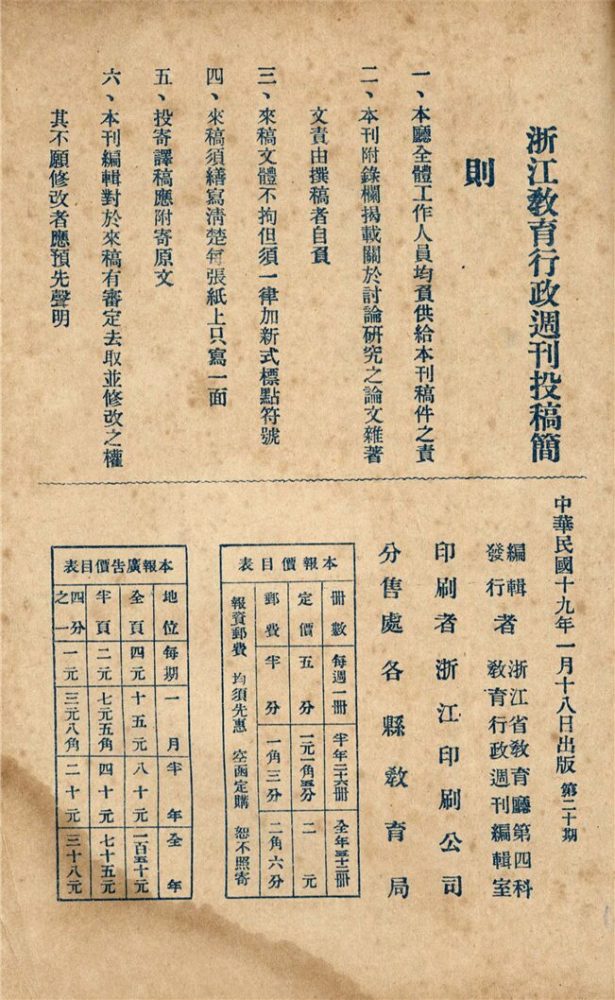 浙江教育行政週刊投稿簡
則
一、本廳全體工作人員均負供給本刊稿件之責
二、本刊附錄欄揭載關於討論研究之論文雜著
文責由撰稿者自負
三、來稿文體不拘但須一律加新式標點符號
四、來稿須繕寫清楚每張紙上只寫一面
五、投寄譯稿應附寄原文
六、本刊編輯對於來稿有審定去取並修改之權
其不願修改者應預先聲明
中華民國十九年一月十八日出版 第二十期
編輯發行者 浙江省教育廳第四科
教育行政週刊編輯室
印刷者浙江印刷公司
分售處各縣教育局
本報價目表
冊數 每週一冊 半年二十六冊 全年五十二冊
定價 五分 一元一角五分 二元
郵費 半分 一角三分 二角六分
報資郵費 均須先惠 空函定購 恕不照寄
本報廣告價目表
地位 每期 一月 半年 全年
全頁 四元 十五元 八十元 一百五十元
半頁 二元 七元五角 四十元 七十五元
四分之一 一元 三元八角 二十元 三十八元